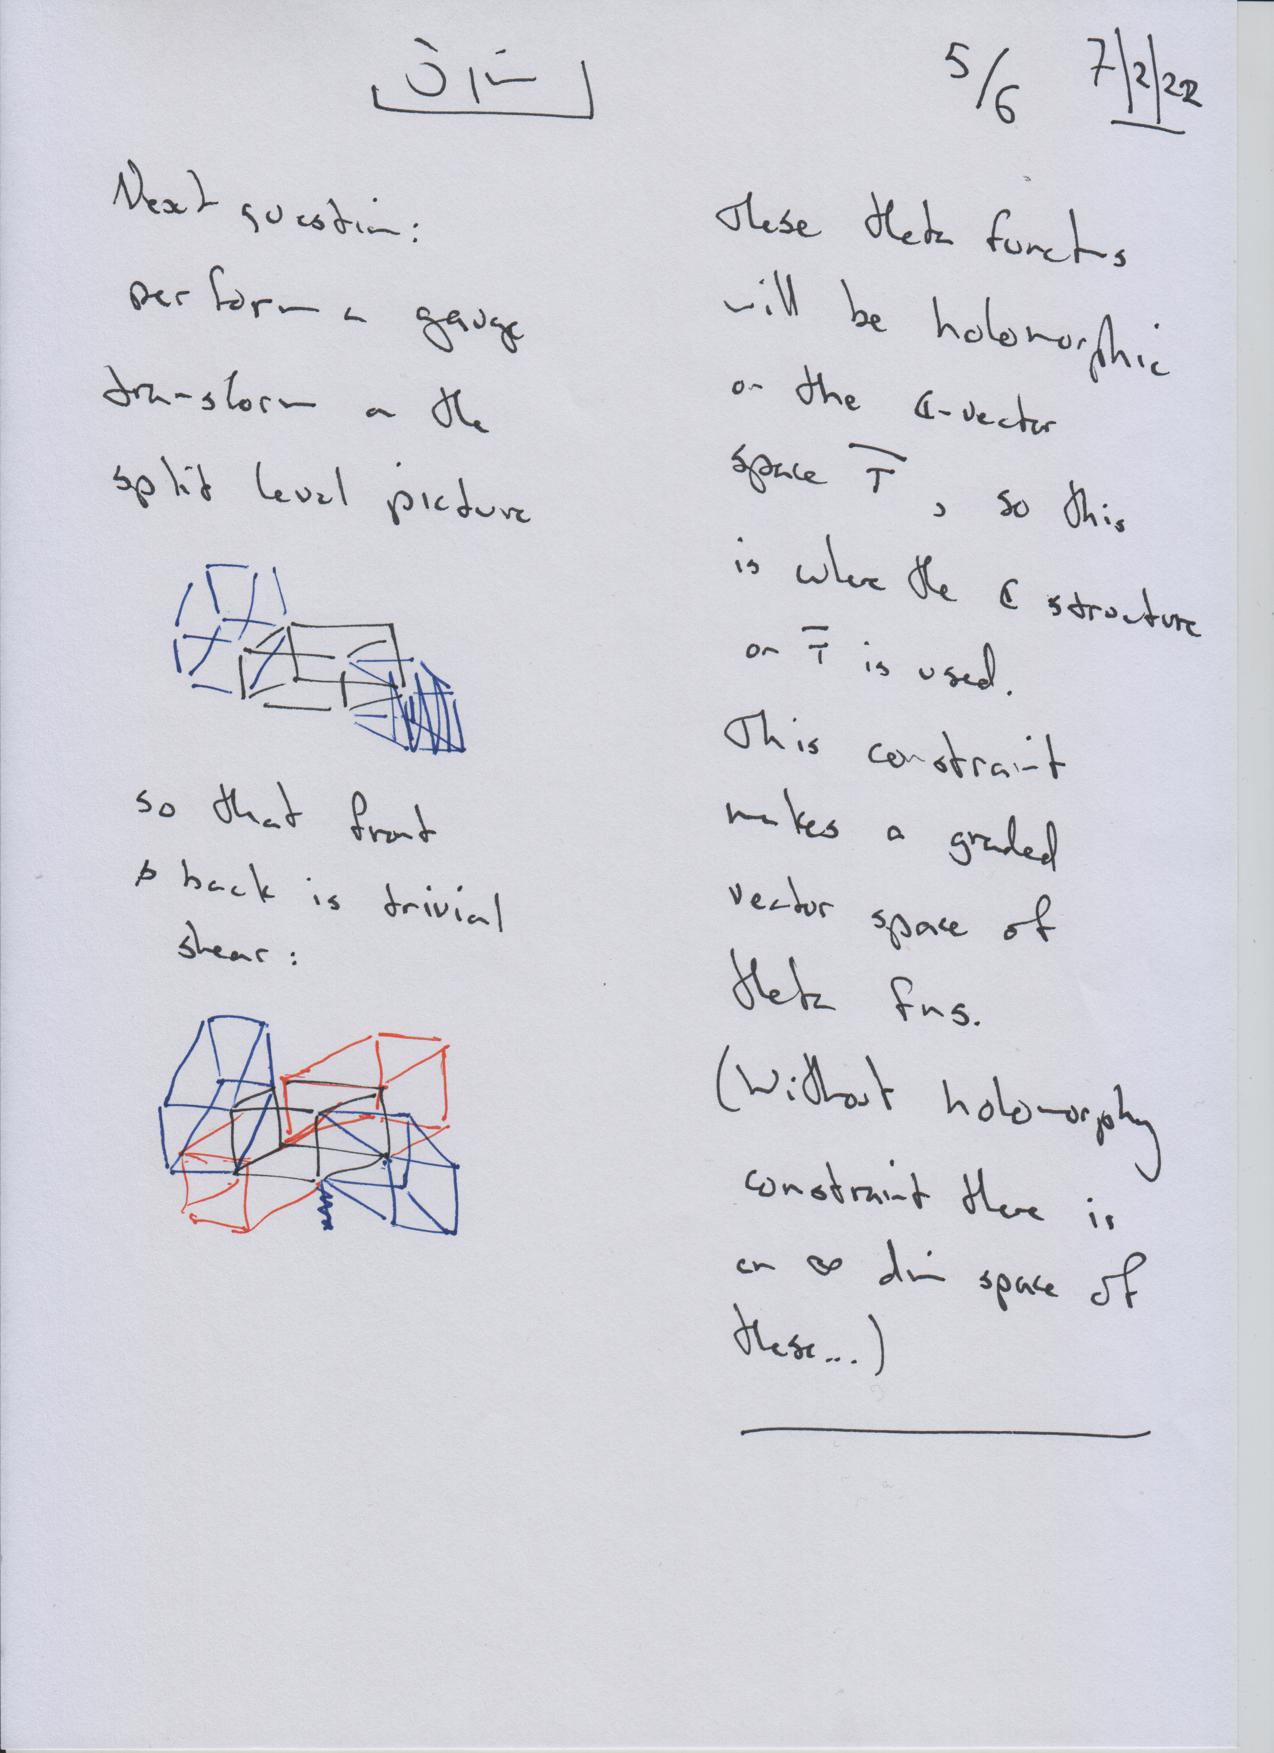 5/6 7/2/22
Next question:
perform a gauge
transform on the
split level picture
so that front
& back is trivial
shear:
These theta functns
will be holomorphic
on the ℂ-vector
space T̅, so this
is where the ℂ structure
on T̅ is used.
This constraint
makes a graded
vector space of
theta fns.
(Without holomorphy
constraint there is
an ∞ dim space of
these...)